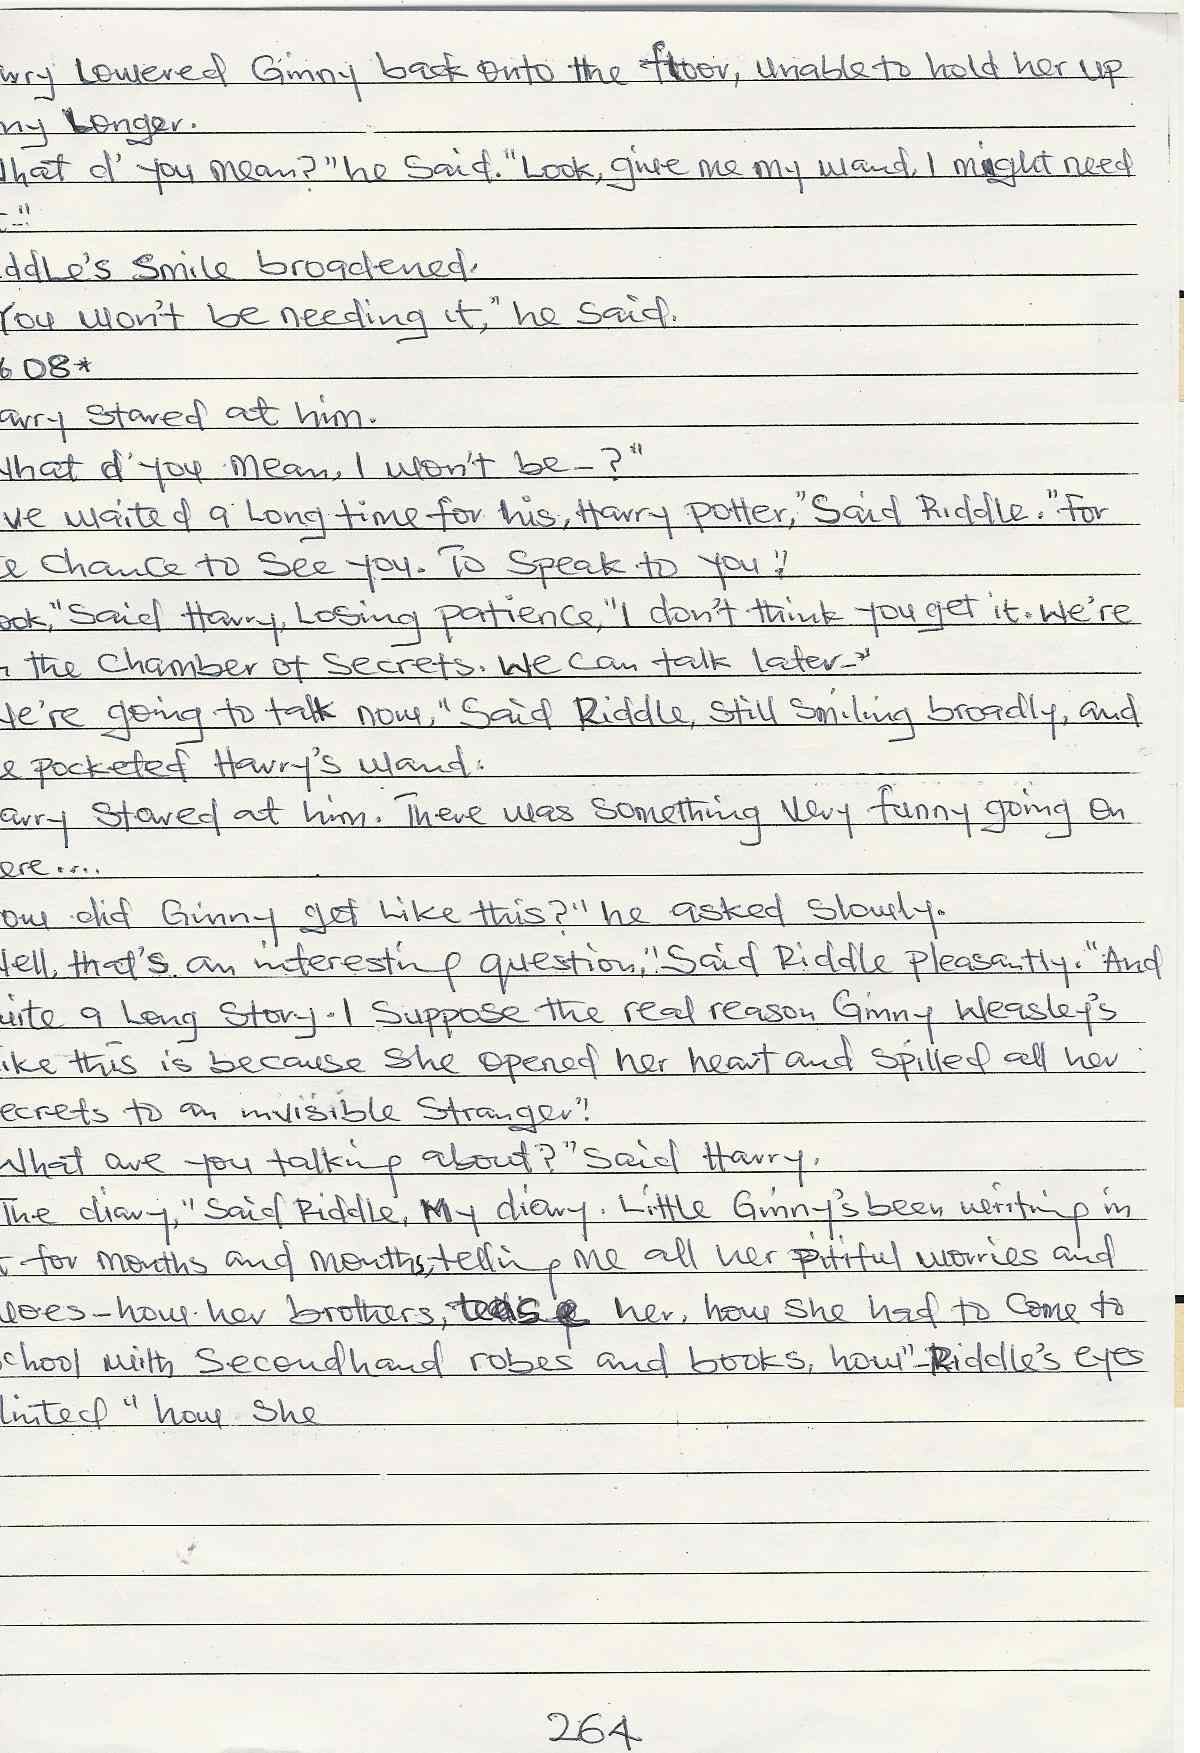 wry Lowered Ginny back onto the floor, unable to hold her up
ny Longer.
hat d' you mean?" he Said. "Look, give me my wand, I might need
t-"
ddLe's Smile broadened.
You won't be needing it," he Said.
608*
arry Stared at him.
hat d' you mean, I won't be-?"
ve waited a Long time for his, Harry potter," Said Riddle. "for
e Chance to See you. To Speak to you"
ook," Said Harry, Losing patience, "I don't think you get it. We're
n the Chamber of Secrets. We can talk later-"
We're going to talk now," Said Riddle, Still Smiling broadly, and
e pocketed Harry's wand.
arry Stared at him. There was Something Very funny going on
ere....
ow did Ginny get Like this?" he asked Slowly.
Well, that's an interesting question," Said Riddle Pleasantly. "And
uite a Long Story. I Suppose the real reason Ginny Weasley's
ike this is because She opened her heart and Spilled all her
ecrets to an invisible Stranger"
What are you talking about?" Said Harry.
The diary," Said Riddle, My diary. Little Ginny's been writing in
t for months and months, telling me all her pitiful worries and
woes-how her brothers, tease her, how She had to Come to
school with Secondhand robes and books, how"-Riddle's eyes
linted "how She
264